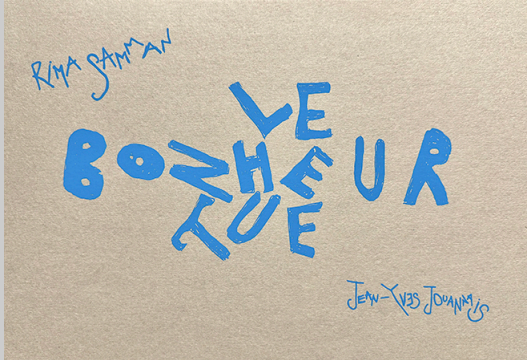 RIMA SAMMAN
LE
BONHEUR
TUE
JEAN-YVES JOUANNAIS